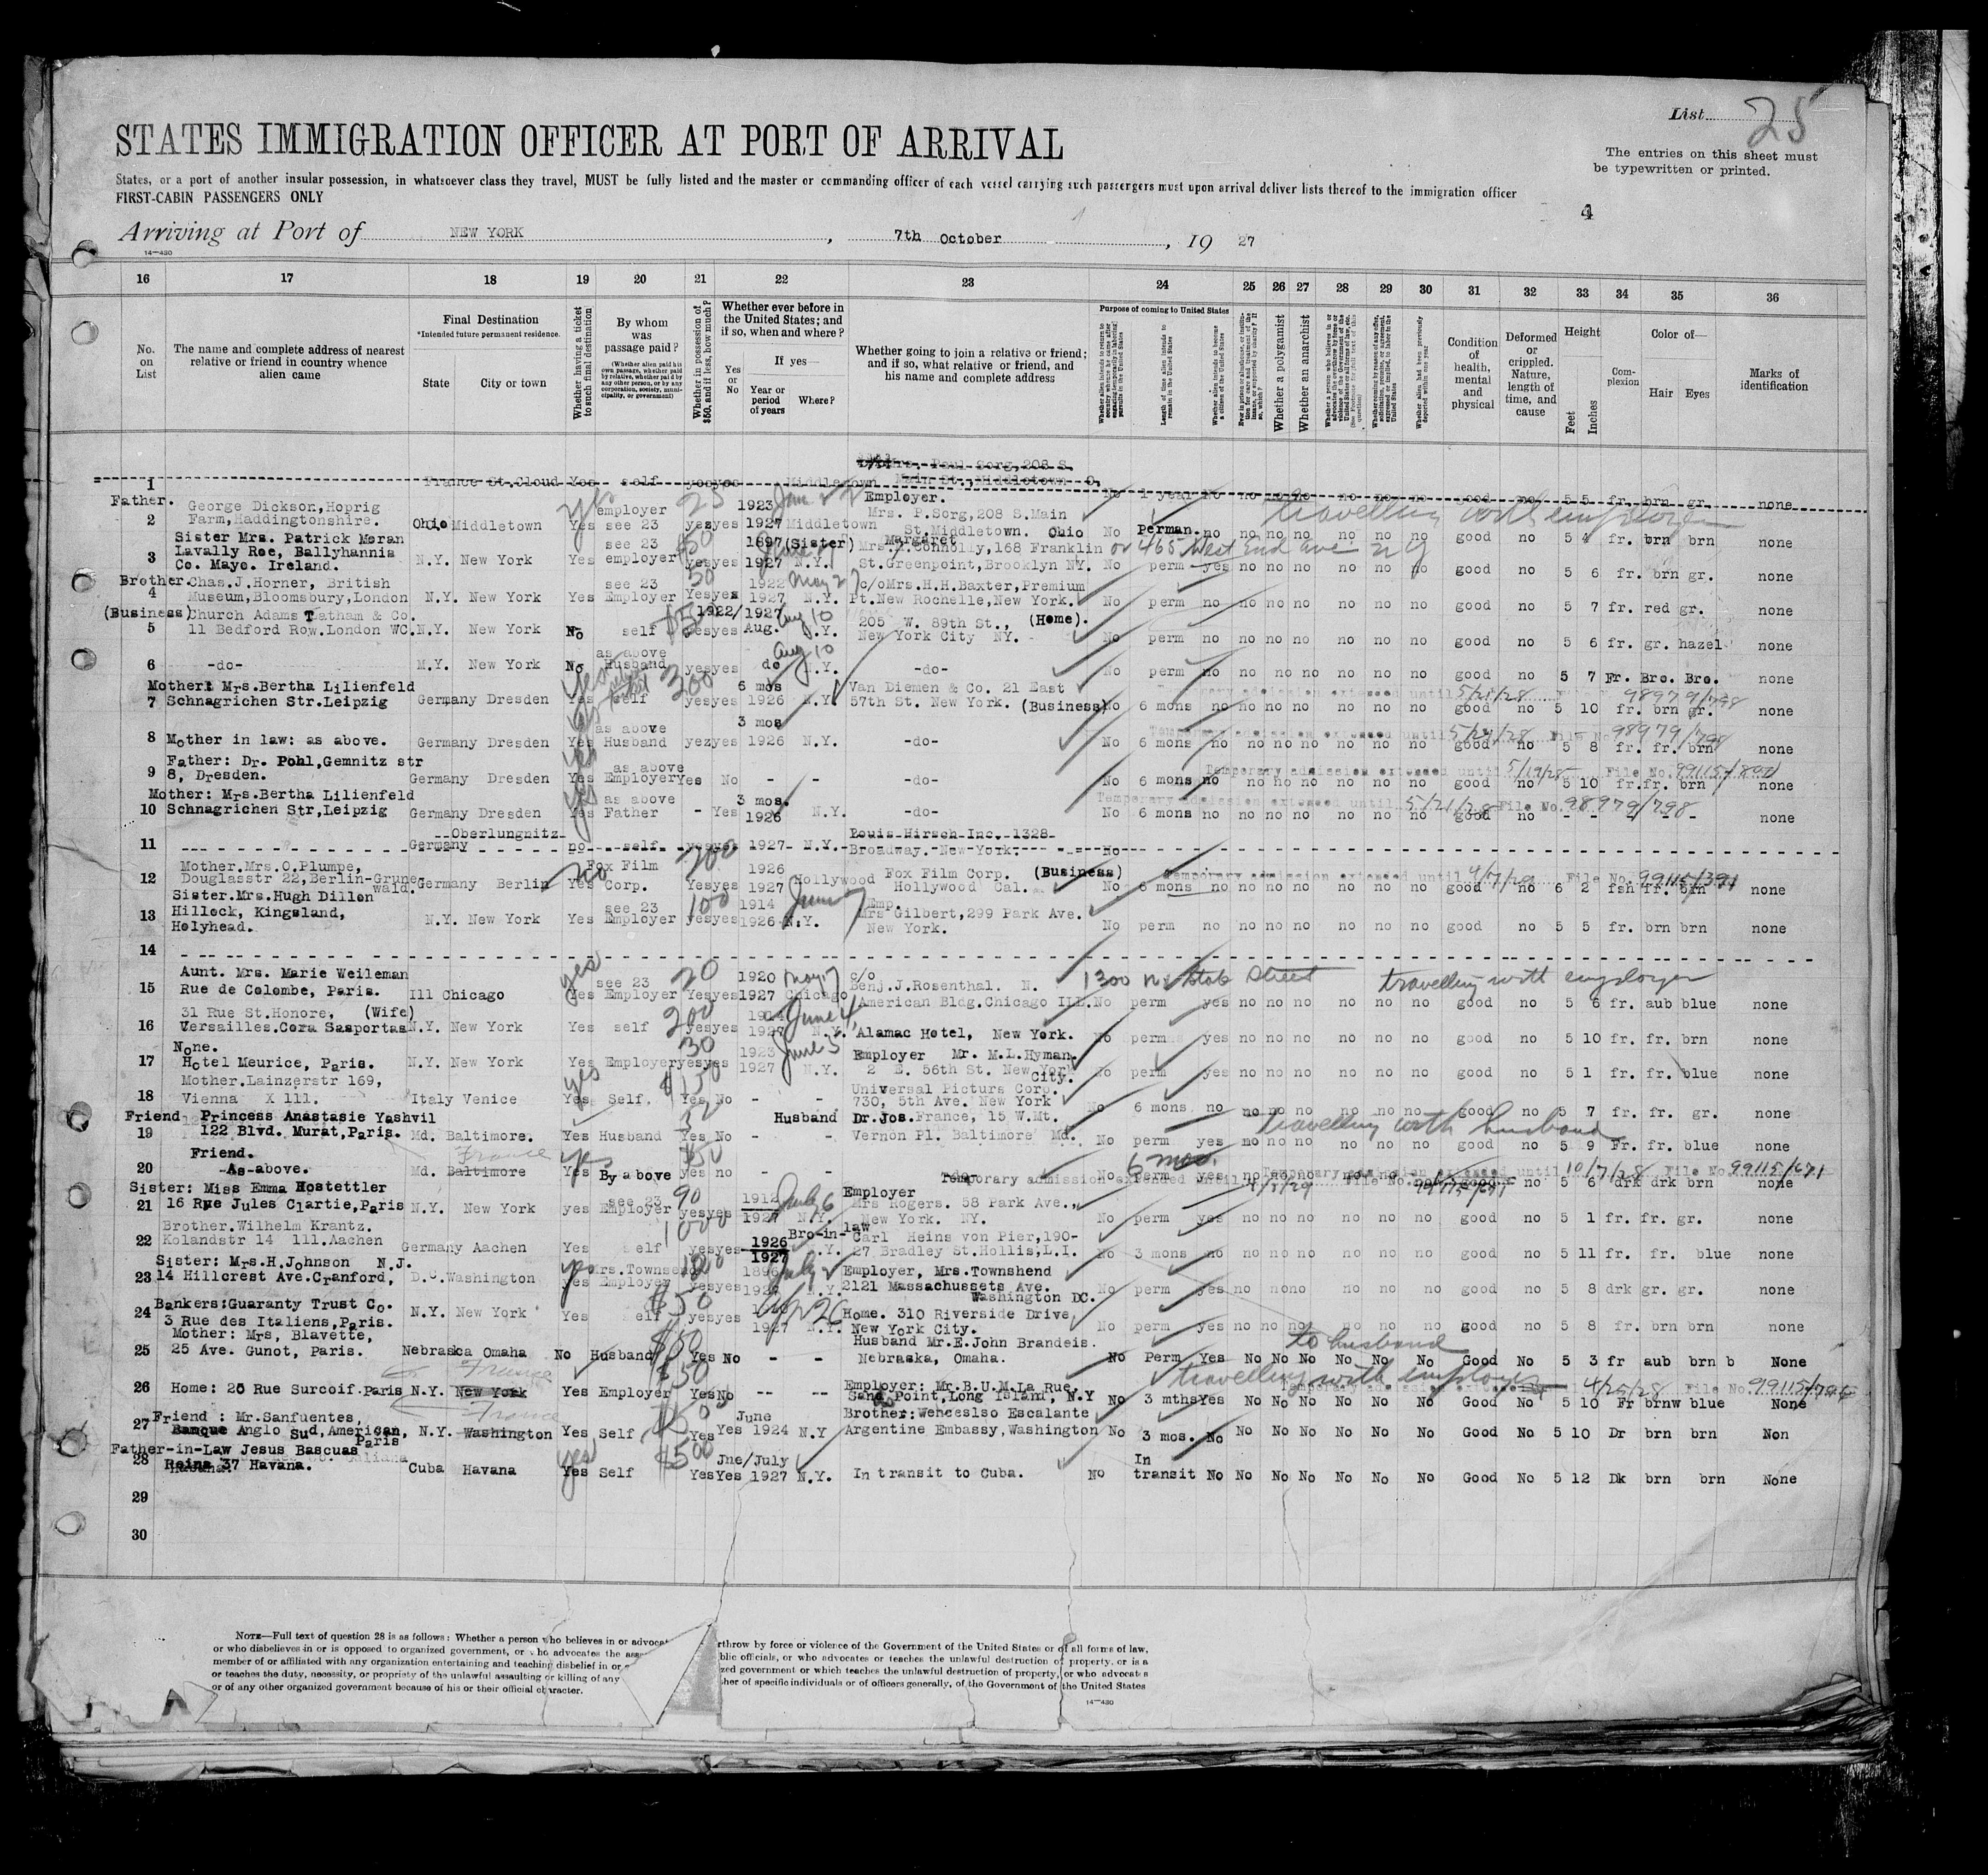 List 25
STATES IMMIGRATION OFFICER AT PORT OF ARRIVAL
The entries on this sheet must
be typewritten or printed.
States, or a port of another insular possession, in whatsoever class they travel, MUST be fully listed and the master or commanding officer of each vessel carrying such passengers must upon arrival deliver lists thereof to the immigration officer
FIRST-CABIN PASSENGERS ONLY
4
Arriving at Port of NEW YORK, 7th October, 19 27
14—430
16 17 18 19 20 21 22 23 24 25 26 27 28 29 30 31 32 33 34 35 36
No. on List
The name and complete address of nearest relative or friend in country whence alien came
Final Destination
*Intended future permanent residence.
State City or town
Whether having a ticket to such final destination
By whom was passage paid?
(Whether alien paid his own passage, whether paid by relative, whether paid by any other person, or by any corporation, society, municipality, or government)
Whether in possession of $50, and if less, how much?
Whether ever before in the United States; and if so, when and where?
Yes or No
If yes—
Year or period of years Where?
Whether going to join a relative or friend; and if so, what relative or friend, and his name and complete address
Purpose of coming to United States
Length of time alien intends to remain in the United States
Whether alien intends to become a citizen of the United States
Whether a polygamist
Whether an anarchist
Condition of health, mental and physical
Deformed or crippled. Nature, length of time, and cause
Height
Feet Inches
Complexion
Color of—
Hair Eyes
Marks of identification
Mrs. Paul Sorg, 208 S.
Main St., Middletown O.
1 France St.Cloud Yes self yes yes Middletown No 1 year No no no no no no no good no 5 5 fr. brn gr. none
Father. George Dickson, Hoprig employer 25 1923 Employer. travelling with employer
2 Farm, Haddingtonshire. Ohio Middletown Yes see 23 yes yes 1927 Middletown Mrs. P.Sorg, 208 S.Main St. Middletown. Ohio No Perman. no no no no no no no good no 5 4 fr. brn brn none
Sister Mrs. Patrick Moran see 23 50 1897 (Sister) Margaret
3 Lavally Roe, Ballyhannia Co. Mayo. Ireland. N.Y. New York Yes employer yes yes 1927 N.Y. Mrs. T. Connolly, 168 Franklin or 465 West End ave N Y
St. Greenpoint, Brooklyn NY. No perm yes no no no no no no good no 5 6 fr. brn gr. none
Brother. Chas. J. Horner, British see 23 50 1922 May 27 c/o Mrs. H.H. Baxter, Premium
4 Museum, Bloomsbury, London N.Y. New York Yes Employer Yes yes 1927 N.Y. Pt. New Rochelle, New York. No perm no no no no no no no good no 5 7 fr. red gr. none
(Business) Church Adams Tatham & Co. 1922/1927 Aug 10 205 W. 89th St., (Home).
5 11 Bedford Row. London WC. N.Y. New York No self yes yes Aug. N.Y. New York City NY. No perm no no no no no no no good no 5 6 fr. gr. hazel none
as above Aug 10
6 -do- N.Y. New York No Husband yes yes do N.Y. -do- No perm no no no no no no no good no 5 7 Fr. Bro. Bro. none
Mother: Mrs. Bertha Lilienfeld yes 300 6 mos Van Diemen & Co. 21 East Temporary admission extended until 5/21/28 File No. 98979/798
7 Schnagrichen Str. Leipzig Germany Dresden Yes self yes yes 1926 N.Y. 57th St. New York. (Business) No 6 mons no no no no no no no good no 5 10 fr. brn gr. none
as above 3 mos Temporary admission extended until 5/21/28 File No. 98979/798
8 Mother in law: as above. Germany Dresden Yes Husband yez yes 1926 N.Y. -do- No 6 mons no no no no no no no good no 5 8 fr. fr. brn none
Father: Dr. Pohl, Gemnitz str as above Temporary admission extended until 5/19/28 File No. 99115/800
9 8, Dresden. Germany Dresden Yes Employer Yes No - - -do- No 6 mons no no no no no no no good no 5 10 fr. fr. brn none
Mother: Mrs. Bertha Lilienfeld as above 3 mos. Temporary admission extended until 5/21/28 File No. 98979/798
10 Schnagrichen Str, Leipzig Germany Dresden Yes Father - Yes 1926 N.Y. -do- No 6 mons no no no no no no no good no - - - - - none
11 Oberlungnitz Germany no self yes yes 1927 N.Y. Louis Hirsch Inc. 1328 Broadway. New York. No
Mother. Mrs. O. Plumpe, Fox Film 700 1926 (Business) Temporary admission extended until 4/7/29 File No. 99115/391
12 Douglasstr 22, Berlin-Grunewald. Germany Berlin Yes Corp. Yes yes 1927 Hollywood Fox Film Corp. Hollywood Cal. No 6 mons no no no no no no no good no 6 2 fsh fr. brn none
Sister. Mrs. Hugh Dillon see 23 100 1914 June 7 Emp.
13 Hillock, Kingsland, Holyhead. N.Y. New York Yes Employer yes yes 1926 N.Y. Mrs Gilbert, 299 Park Ave. New York. No perm no no no no no no no good no 5 5 fr. brn brn none
14
Aunt. Mrs. Marie Weileman yes see 23 20 1920 May 7 c/o 1300 N. State Street travelling with employer
15 Rue de Colombe, Paris. Ill Chicago Yes Employer Yes yes 1927 Chicago Benj. J. Rosenthal. N. American Bldg. Chicago Ill. No perm yes no no no no no no good no 5 6 fr. aub blue none
31 Rue St. Honore, (Wife) 200 June 4
16 Versailles. Cora Sasportas N.Y. New York Yes self yes yes 1927 N.Y. Alamac Hotel, New York. No perm yes no no no no no no good no 5 10 fr. fr. brn none
None. 30 1923 June 3 Employer Mr. M.L. Hyman,
17 Hotel Meurice, Paris. N.Y. New York Yes Employer yes yes 1927 N.Y. 2 E. 56th St. New York City. No perm yes no no no no no no good no 5 1 fr. fr. blue none
Mother. Lainzerstr 169, yes $150 Universal Picture Corp.
18 Vienna X 111. Italy Venice Yes Self. Yes No - - 730, 5th Ave. New York No 6 mons no no no no no no no good no 5 7 fr. fr. gr. none
Friend Princess Anastasie Yashvil Husband Dr. Jos. France, 15 W. Mt. travelling with husband
19 122 Blvd. Murat, Paris. Md. Baltimore. Yes Husband Yes No - - Vernon Pl. Baltimore Md. No perm yes no no no no no no good no 5 9 Fr. fr. blue none
Friend. France yes $50 6 mos. Temporary admission extended until 10/7/28 File No. 99115/671
20 -As above. Md. Baltimore Yes By above yes no - - -do- No perm yes no no no no no no good no 5 6 drk drk brn none
Temporary admission extended until File No. 99115/671
Sister: Miss Emma Hostettler see 23 90 1912 July 6 Employer
21 16 Rue Jules Clartie, Paris N.Y. New York yes Employer yes yes 1927 N.Y. Mrs Rogers. 58 Park Ave., New York. NY. No perm yes no no no no no no good no 5 1 fr. fr. gr. none
Brother. Wilhelm Krantz. 1000 Bro-in-law
22 Kolandstr 14 111. Aachen Germany Aachen Yes self yes yes 1926 1927 N.Y. Carl Heins von Pier, 190-27 Bradley St. Hollis, L.I. No 3 mons no no no no no no no good no 5 11 fr. fr. blue none
Sister: Mrs. H. Johnson N.J. Mrs. Townsend 1896 July 2 Employer, Mrs. Townshend
23 14 Hillcrest Ave. Cranford, D.C. Washington yes Employer yes yes N.Y. 2121 Massachussets Ave. Washington DC. No perm yes no no no no no no good no 5 8 drk gr. gr. none
24 Bankers: Guaranty Trust Co. N.Y. New York Yes self $50 yes yes Home. 310 Riverside Drive,
3 Rue des Italiens, Paris. 1927 N.Y. New York City. No perm yes no no no no no no good no 5 8 fr. brn brn none
Mother: Mrs, Blavette, Husband Mr. E. John Brandeis. to husband
25 25 Ave. Gunot, Paris. Nebraska Omaha No Husband Yes No - - Nebraska, Omaha. No Perm Yes No No No No No No Good No 5 3 fr aub brn b None
France $50 Employer: Mr. B.U.M. La Rue, travelling with employer 4/25/28 File No. 99115/
26 Home: 25 Rue Surcoif. Paris N.Y. New York Yes Employer Yes No -- -- Sand Point, Long Island, N.Y No 3 mths Yes No No No No No No Good No 5 10 Fr brnw blue None
Friend: Mr. Sanfuentes, France June Brother: Wenceslso Escalante
27 Banque Anglo Sud, American, Paris N.Y. Washington Yes Self Yes Yes 1924 N.Y Argentine Embassy, Washington No 3 mos. No No No No No No No Good No 5 10 Dr brn brn Non
Father-in-Law Jesus Bascuas yes $500 Jne/July In
28 Reina 37 Havana. Cuba Havana Yes Self Yes Yes 1927 N.Y. In transit to Cuba. No transit No No No No No No No Good No 5 12 Dk brn brn None
29
30
NOTE—Full text of question 28 is as follows: Whether a person who believes in or advocat rthrow by force or violence of the Government of the United States or of all forms of law,
or who disbelieves in or is opposed to organized government, or who advocates the ass blic officials, or who advocates or teaches the unlawful destruction of property, or is a
member of or affiliated with any organization entertaining and teaching disbelief in or zed government or which teaches the unlawful destruction of property, or who advocates
or teaches the duty, necessity, or propriety of the unlawful assaulting or killing of any her of specific individuals or of officers generally, of the Government of the United States
or of any other organized government because of his or their official character.
14—430